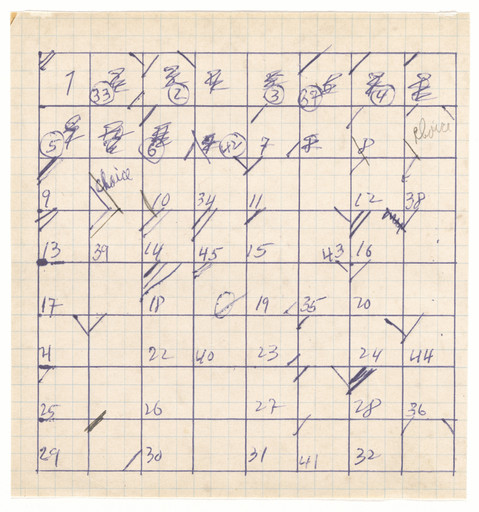 1 33 2 3 37 4
5 6 42 7 8 choice
choice
9 10 34 11 12 38
13 39 14 45 15 43 16
17 18 19 35 20
21 22 40 23 24 44
25 26 27 28 36
29 30 31 41 32